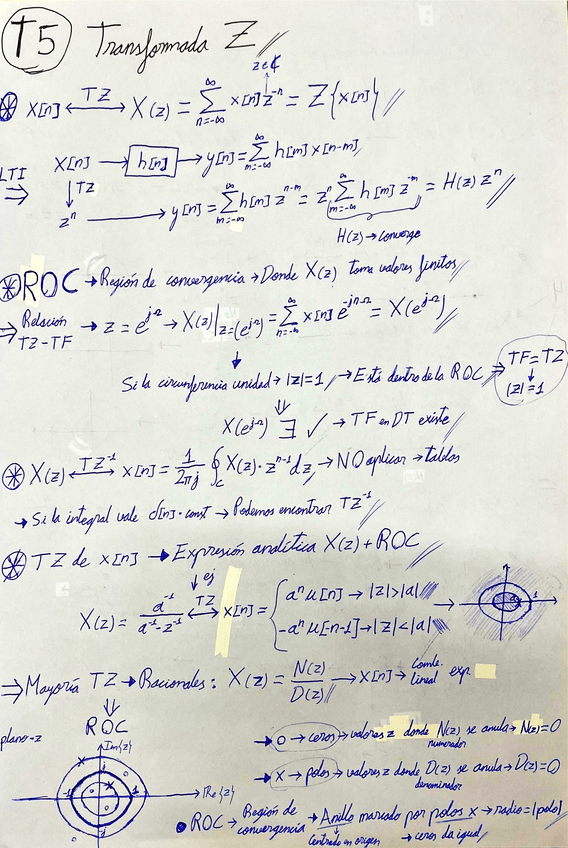 T5 Transformada Z
z∈ℂ
X[n] ⟷TZ X(z) = ∑_{n=-∞}^{∞} x[n] z^{-n} = Z{x[n]}
LTI ⇒ X[n] → h[n] → y[n] = ∑_{m=-∞}^{∞} h[m] x[n-m]
↓ TZ
z^n → y[n] = ∑_{m=-∞}^{∞} h[m] z^{n-m} = z^n ∑_{m=-∞}^{∞} h[m] z^{-m} = H(z) z^n
H(z) → converge
ROC → Región de convergencia → Donde X(z) toma valores finitos
⇒ Relación TZ-TF → z = e^{jΩ} → X(z)|_{z=(e^{jΩ})} = ∑_{n=-∞}^{∞} x[n] e^{-jnΩ} = X(e^{jΩ})
Si la circunferencia unidad → |z|=1 → Está dentro de la ROC ⇒ TF=TZ ↓ |z|=1
X(e^{jΩ}) ∃ ✓ → TF en DT existe
X(z) ⟷TZ^{-1} x[n] = 1/2πj ∮_C X(z)·z^{n-1}dz → NO aplicar → tablas
→ Si la integral vale δ[n]·const → Podemos encontrar TZ^{-1}
TZ de x[n] → Expresión analítica X(z) + ROC
↓ ej
X(z) = a^{-1}/(a^{-1}-z^{-1}) ⟷TZ x[n] = { a^n u[n] → |z|>|a|
-a^n u[-n-1] → |z|<|a|
⇒ Mayoría TZ → Racionales: X(z) = N(z)/D(z) → x[n] → comb. lineal exp
ROC
plano-z
Im{z}
Re{z}
→ O → ceros → valores z donde N(z) se anula → N(z)=0
numerador
→ X → polos → valores z donde D(z) se anula → D(z)=0
denominador
• ROC → Región de convergencia → Anillo marcado por polos x → radio=|polo|
centrado en origen → ceros da igual